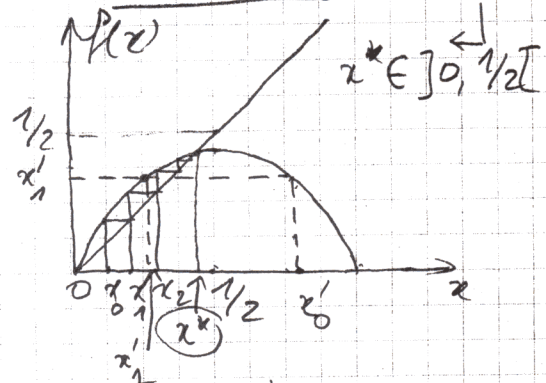 f(x)
x* ∈ ]0, 1/2[
1/2
x'₁
0 x₀ x₁ x₂ x* 1/2 x'₀ x
x'₁